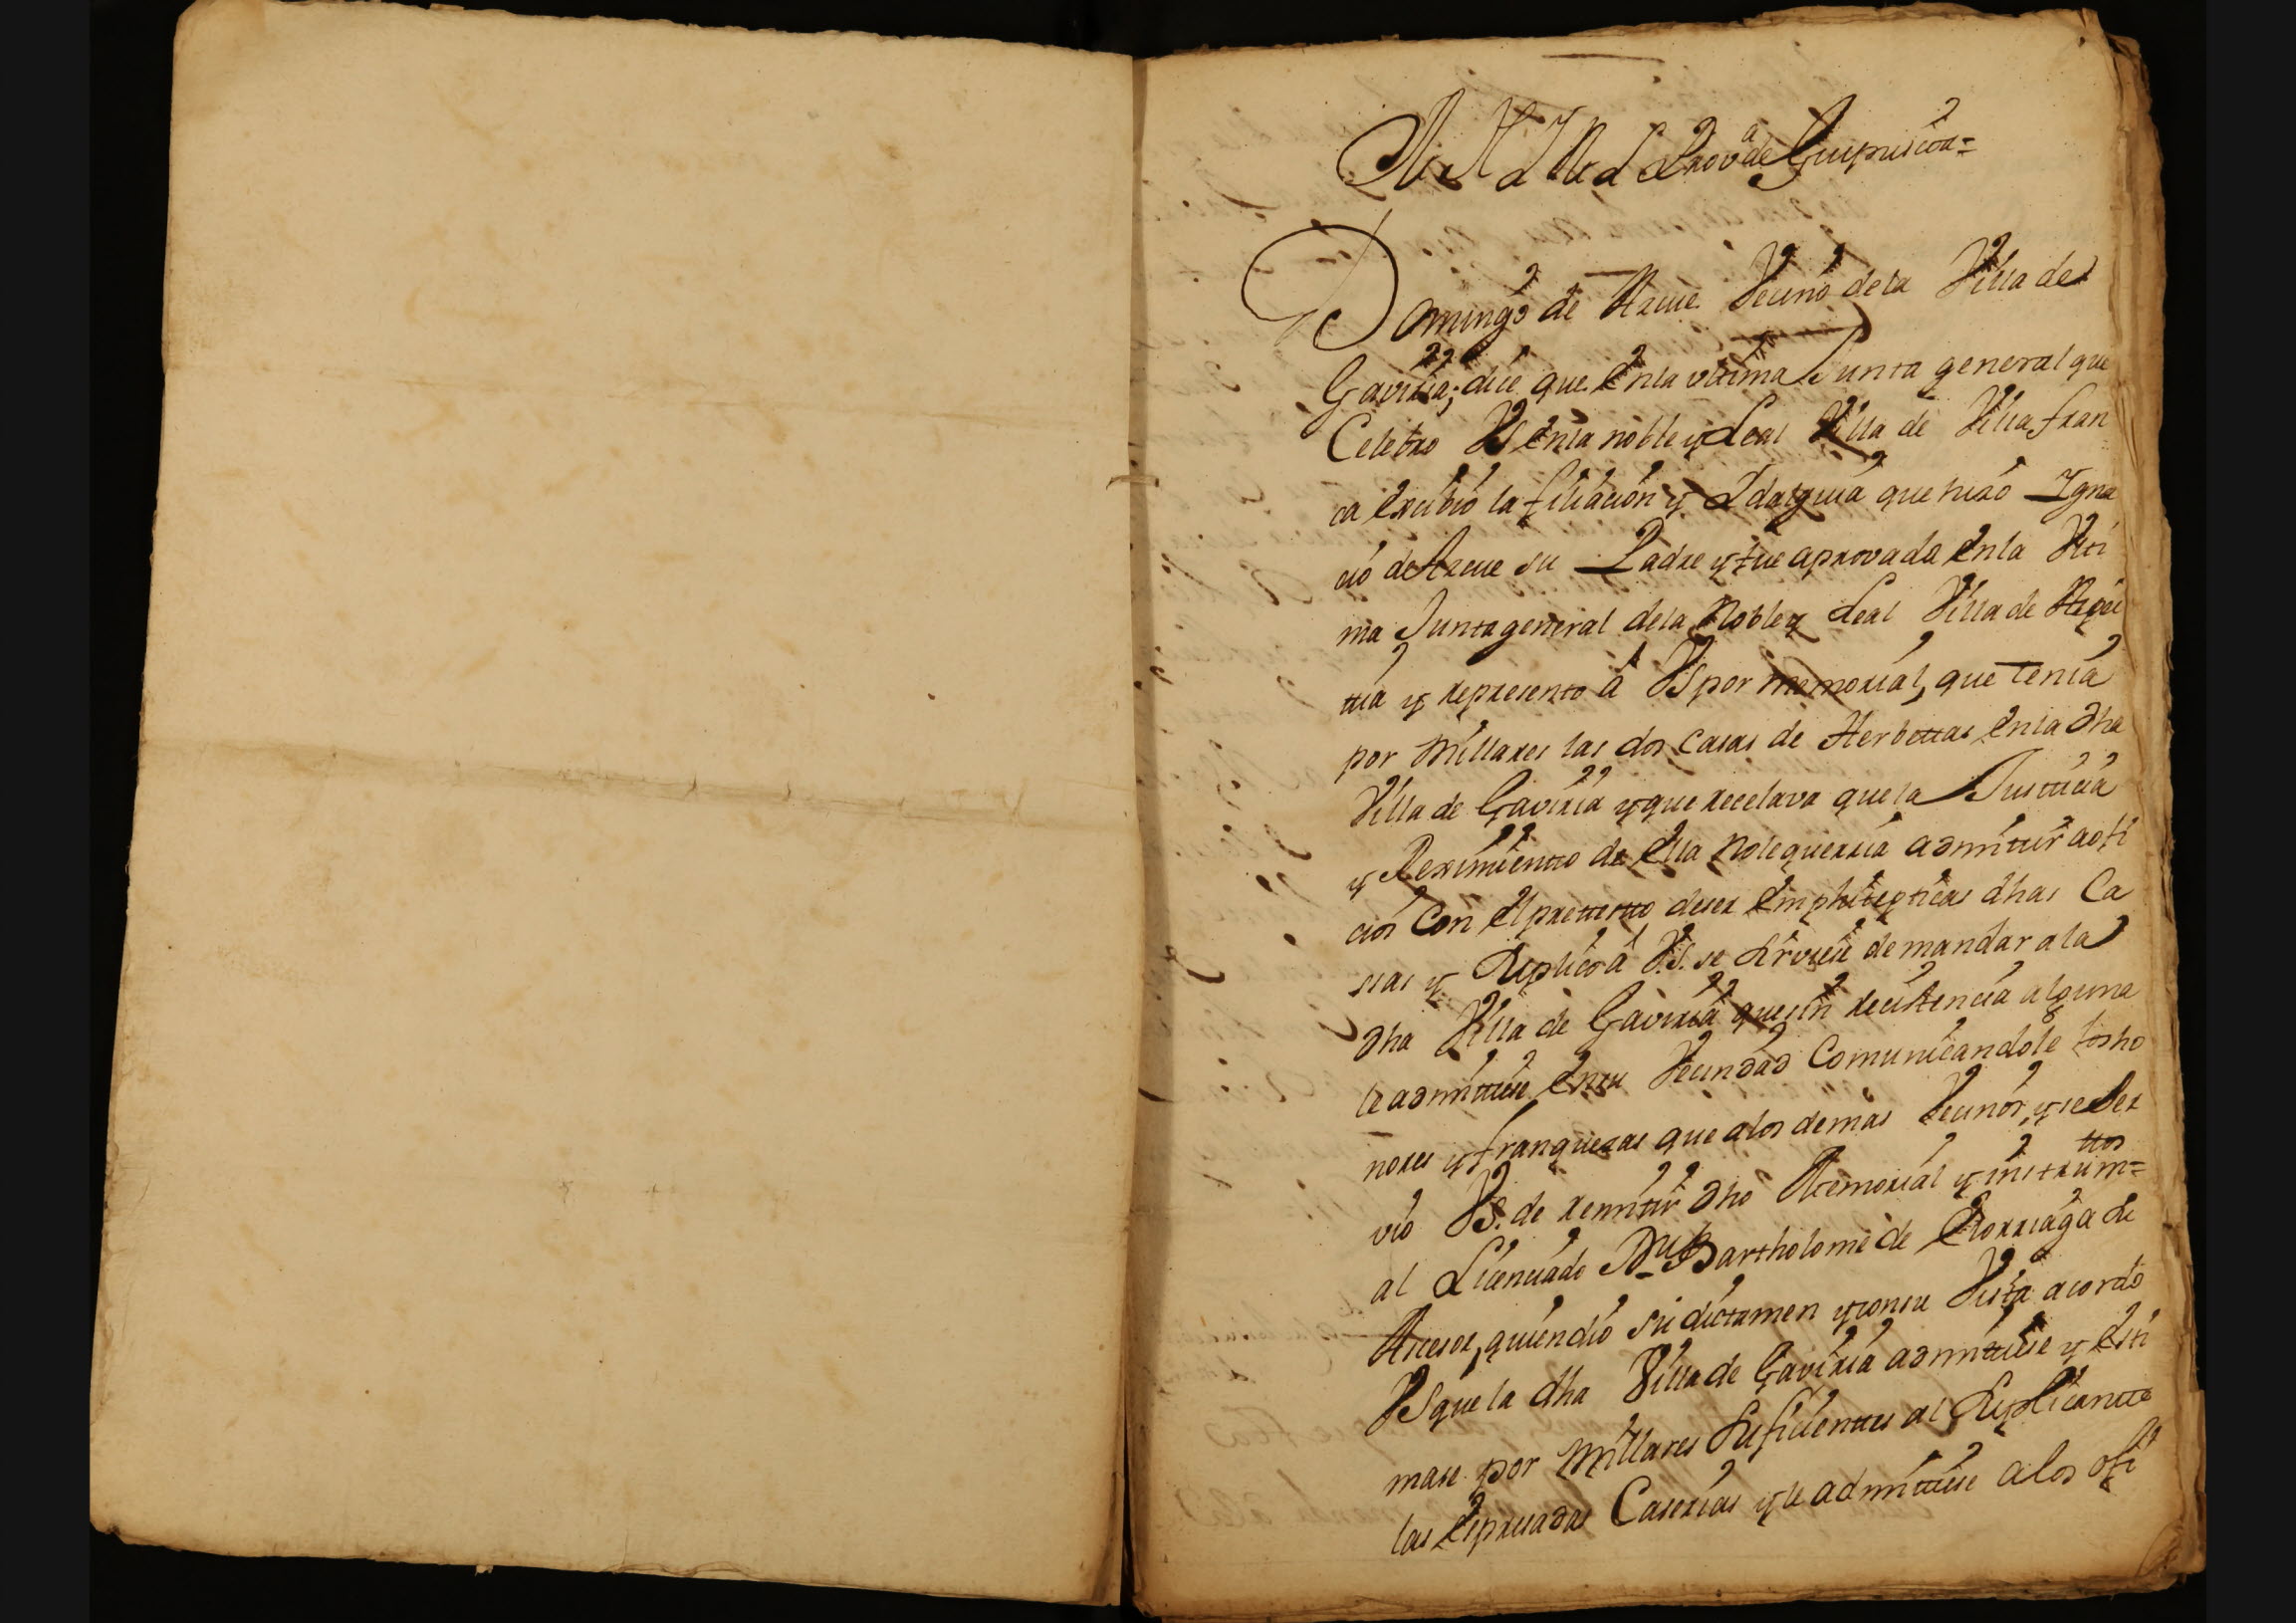 M N Y M L Prov.a de Guipuscoa=
Domingo de Azcue Vecino de la Villa de
Gaviria; dice que en la vltima Junta general que
Celebro VS en la noble y Leal Villa de Villafran
ca exsibio la filiacion y Idalguia que hizo Igna
cio de Azcue su Padre y fue aprovada en la Vlti
ma Junta general de la Noble y Leal Villa de Azpei
tia y represento â VS por memorial, que tenia
por millares las dos casas de Herbettas en la dha
Villa de Gaviria y que recelava que la Justicia
y Reximientto de ella no le querria admitir a ofi
cios con el prettestto de ser emphitepticas dhas Ca
sas y Suplicò â V.S. se sirviese de mandar a la
dha Villa de Gaviria que sin recistencia alguna
le admittiese en su Vecindad comunicandole los ho
nores y franquezas que a los demas Vecinos, y se Ser
vio VS. de remitir dho Memorial y instrum=ttos
al Licenciado Dn Bartholome de Elorriaga de
Acesor, quien dio su dictamen y con su Vista acordò
VS que la dha Villa de Gaviria admittiese y Esti
mase por millares Suficienttes al Suplicantte
las Espresadas Caserias y le admittiese a los ofi